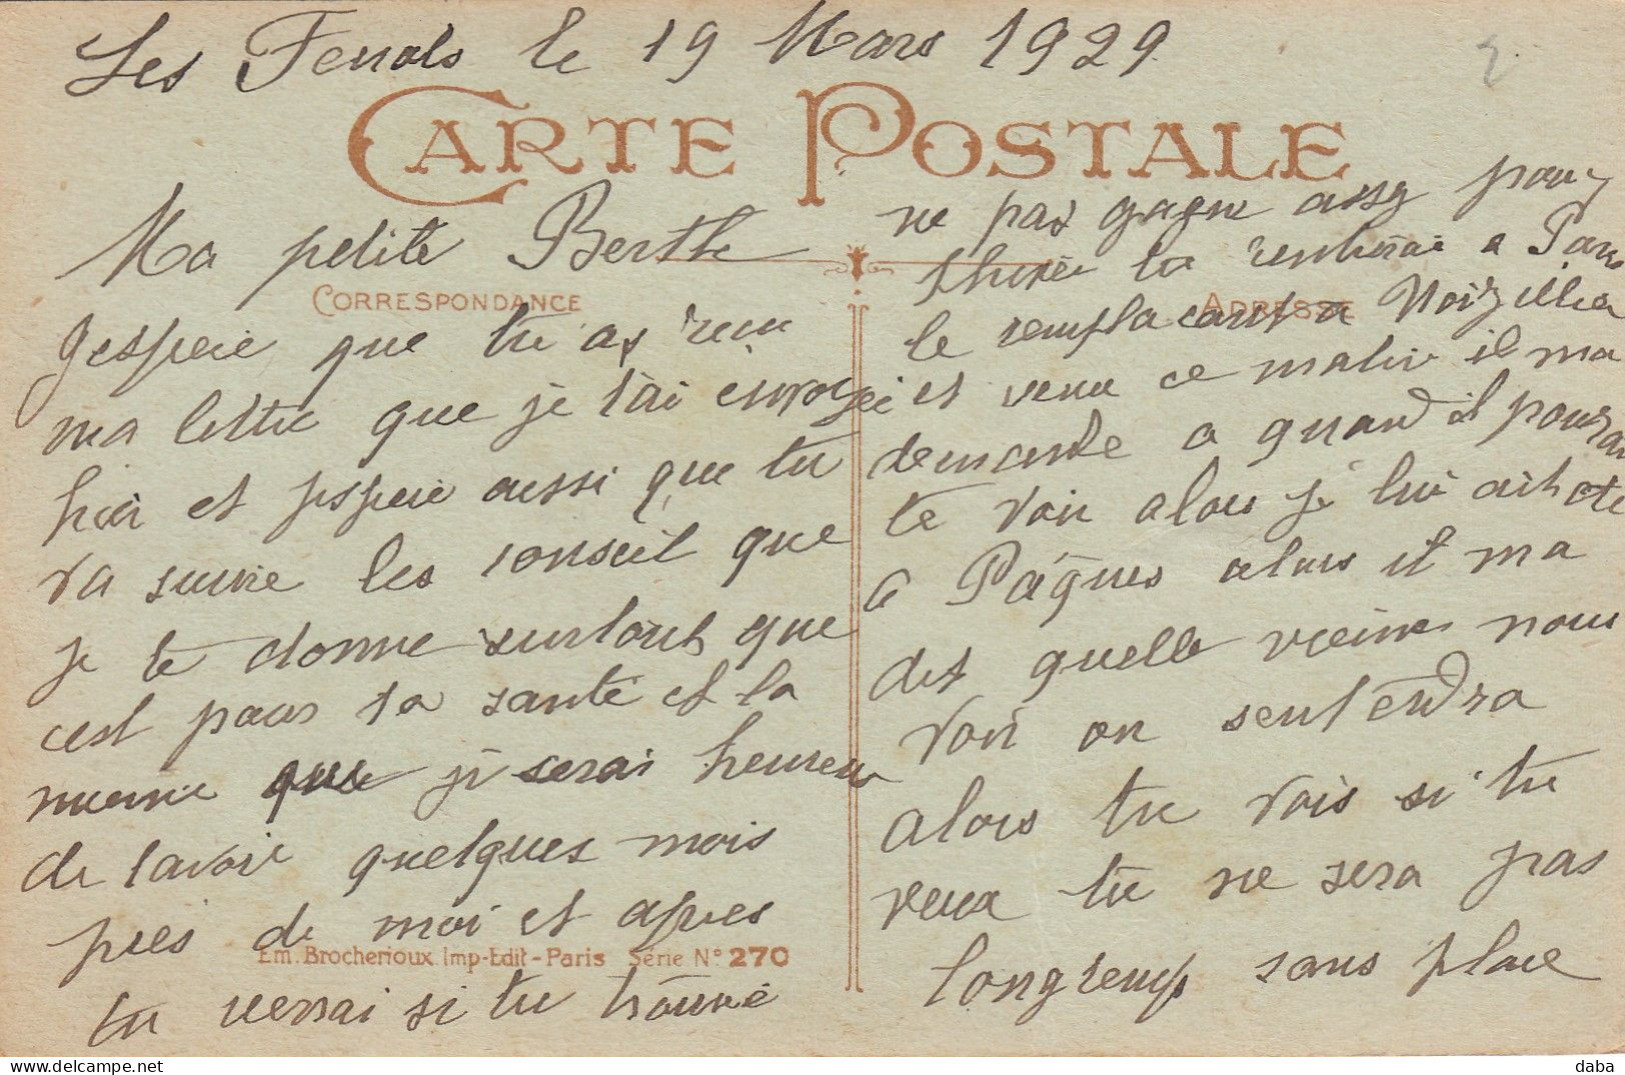 Les Fenols le 19 Mars 1929
CARTE POSTALE
Ma petite Berthe
CORRESPONDANCE
jespere que tu as recu
ma lettre que je tai envoyée
hier et jespere aussi que tu
va suivre les conseil que
je te donne surtout que
cest pour ta santé et la
mienne que je serai heureux
de tavoir quelques mois
pres de moi et apres
Em. Brocherioux Imp-Edit-Paris Série N° 270
tu verrai si tu trouve
ne pas gagne assez pour
tu rentrerai a Paris
ADRESSE
le remplacant a
et venu ce matin il ma
demande a quand il pourra
te voir alors je lui ait
a Pâques alors il ma
dit quelle vienne nous
voir on sentendra
alors tu vois si tu
veux tu ne sera pas
longtemp sans place
daba